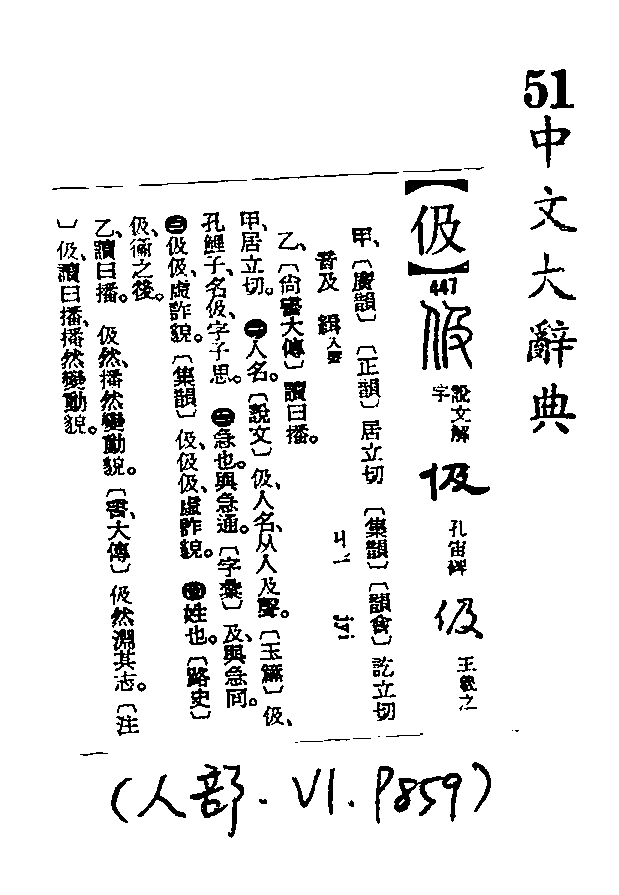 51
中文大辭典
【伋】
447
伋 說文解字 伋 孔宙碑 伋 王羲之
甲、〔廣韻〕〔正韻〕居立切 〔集韻〕〔韻會〕訖立切
音及 緝入聲 ㄐㄧ jyi
乙、〔尙書大傳〕讀曰播。
甲、居立切。㊀人名。〔說文〕伋、人名、从人及聲。〔玉篇〕伋、
孔鯉子、名伋、字子思。㊁急也。與急通。〔字彙〕及、與急同。
㊂伋伋、虛詐貌。〔集韻〕伋、伋伋、虛詐貌。㊃姓也。〔路史〕
伋、衞之後。
乙、讀曰播。 伋然、播然變動貌。〔書、大傳〕伋然淵其志。〔注
〕伋、讀曰播、播然變動貌。
(人部.VI.P859)